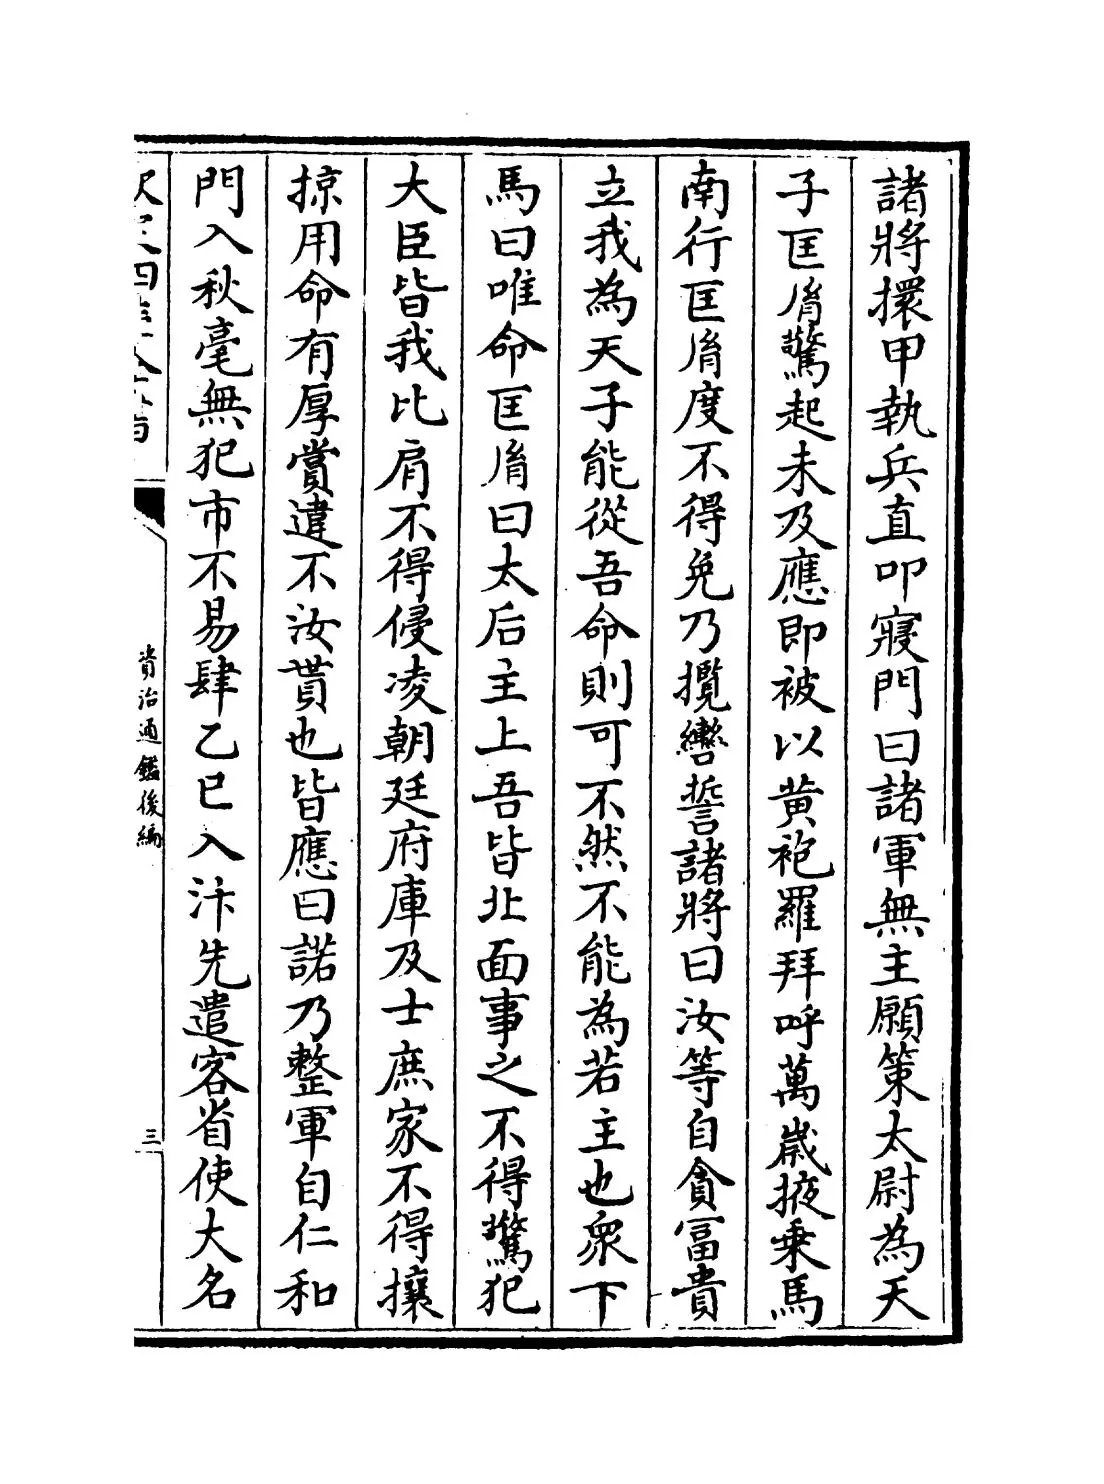 諸將擐甲執兵直叩寢門曰諸軍無主願策太尉為天
子匡胤驚起未及應即被以黄袍羅拜呼萬歲掖乗馬
南行匡胤度不得免乃攬轡誓諸將曰汝等自貪冨貴
立我為天子能從吾命則可不然不能為若主也衆下
馬曰唯命匡胤曰太后主上吾皆北面事之不得驚犯
大臣皆我比肩不得侵凌朝廷府庫及士庶家不得攘
掠用命有厚賞違不汝貰也皆應曰諾乃整軍自仁和
門入秋毫無犯市不易肆乙巳入汴先遣客省使大名
欽定四庫全書
資治通鑑後編
三